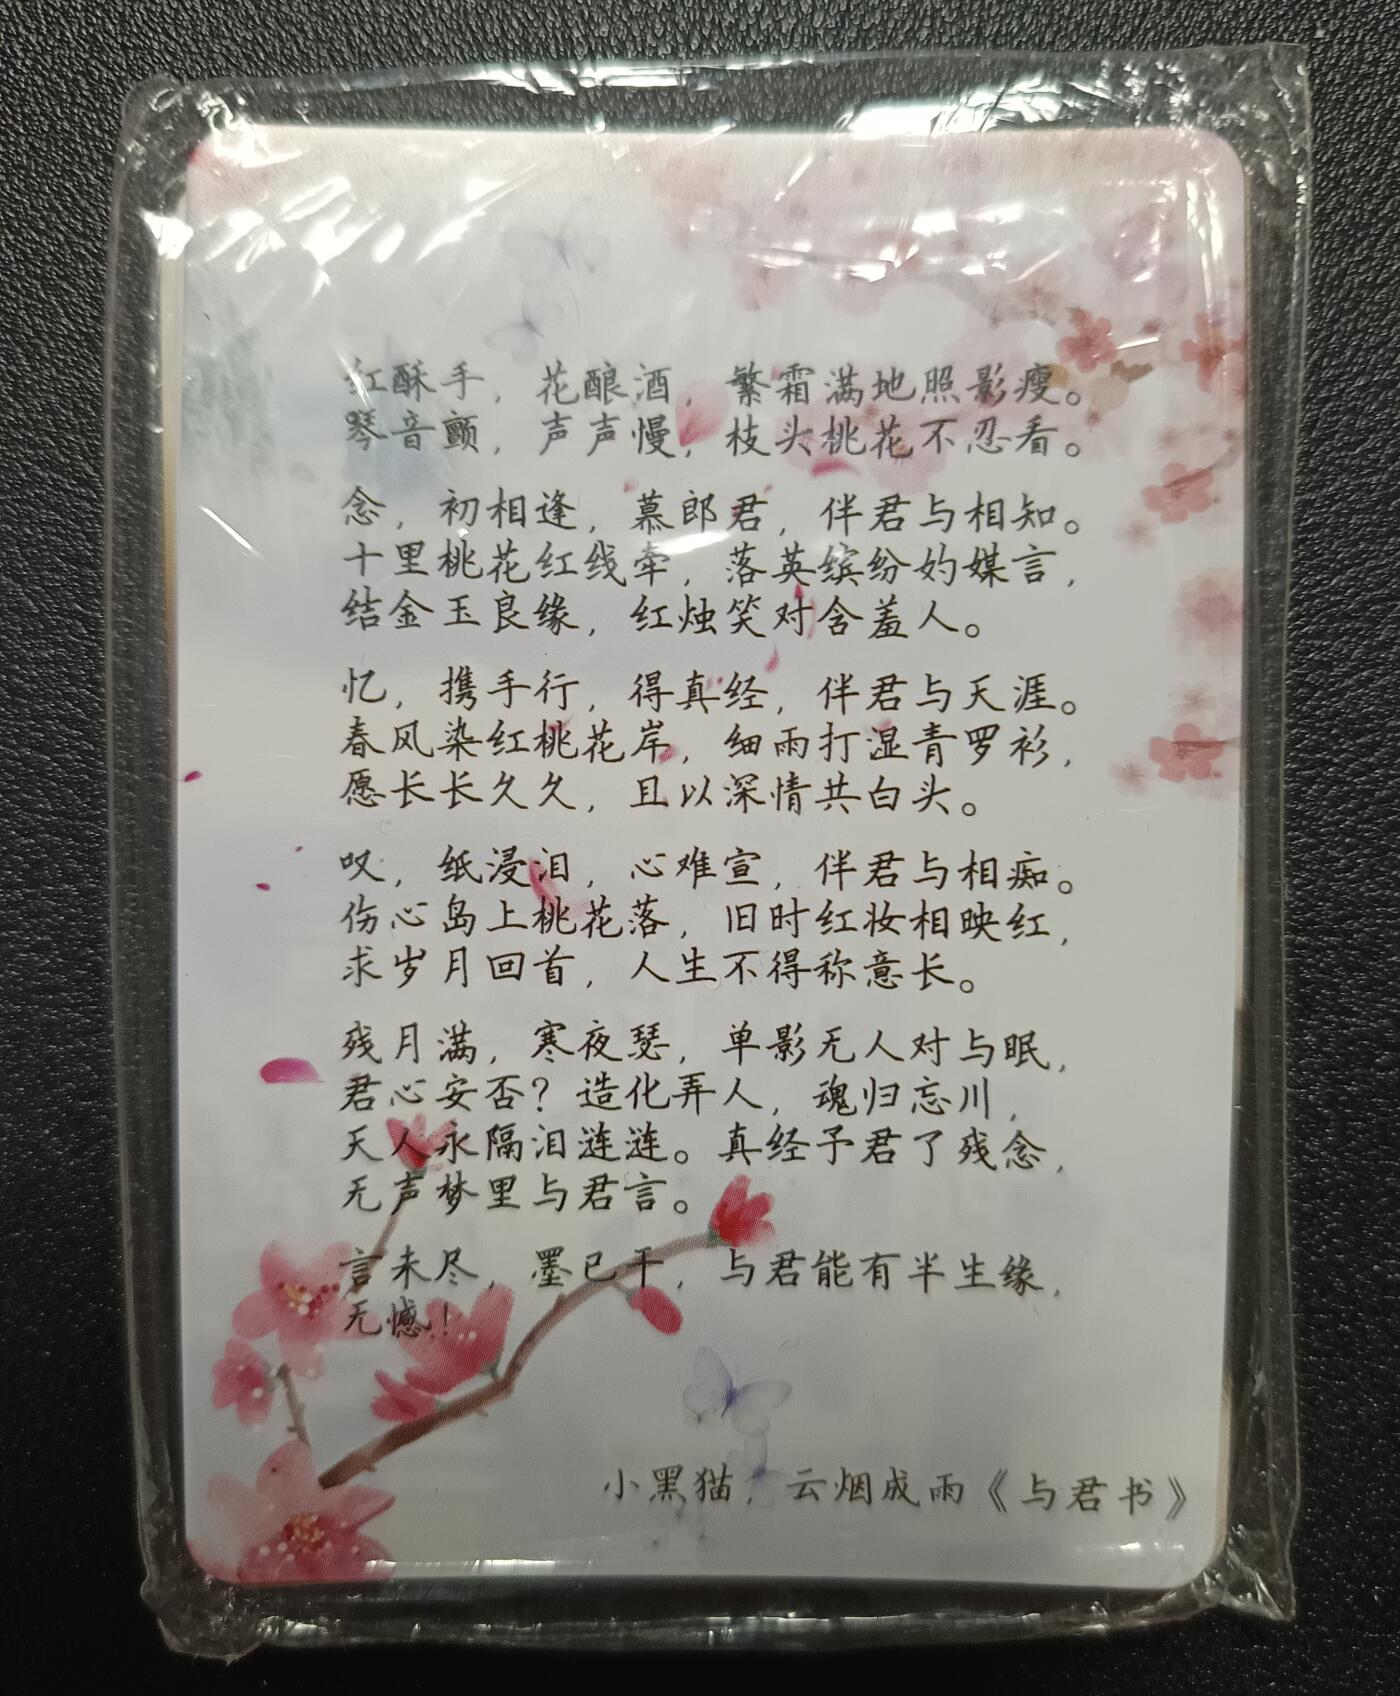 红酥手，花酿酒，繁霜满地照影瘦。
琴音颤，声声慢，枝头桃花不忍看。
念，初相逢，慕郎君，伴君与相知。
十里桃花红线牵，落英缤纷妁媒言，
结金玉良缘，红烛笑对含羞人。
忆，携手行，得真经，伴君与天涯。
春风染红桃花岸，细雨打湿青罗衫，
愿长长久久，且以深情共白头。
叹，纸浸泪，心难宣，伴君与相痴。
伤心岛上桃花落，旧时红妆相映红，
求岁月回首，人生不得称意长。
残月满，寒夜瑟，单影无人对与眠，
君心安否？造化弄人，魂归忘川，
天人永隔泪涟涟。真经予君了残念，
无声梦里与君言。
言未尽，墨已干，与君能有半生缘，
无憾！
小黑猫，云烟成雨《与君书》